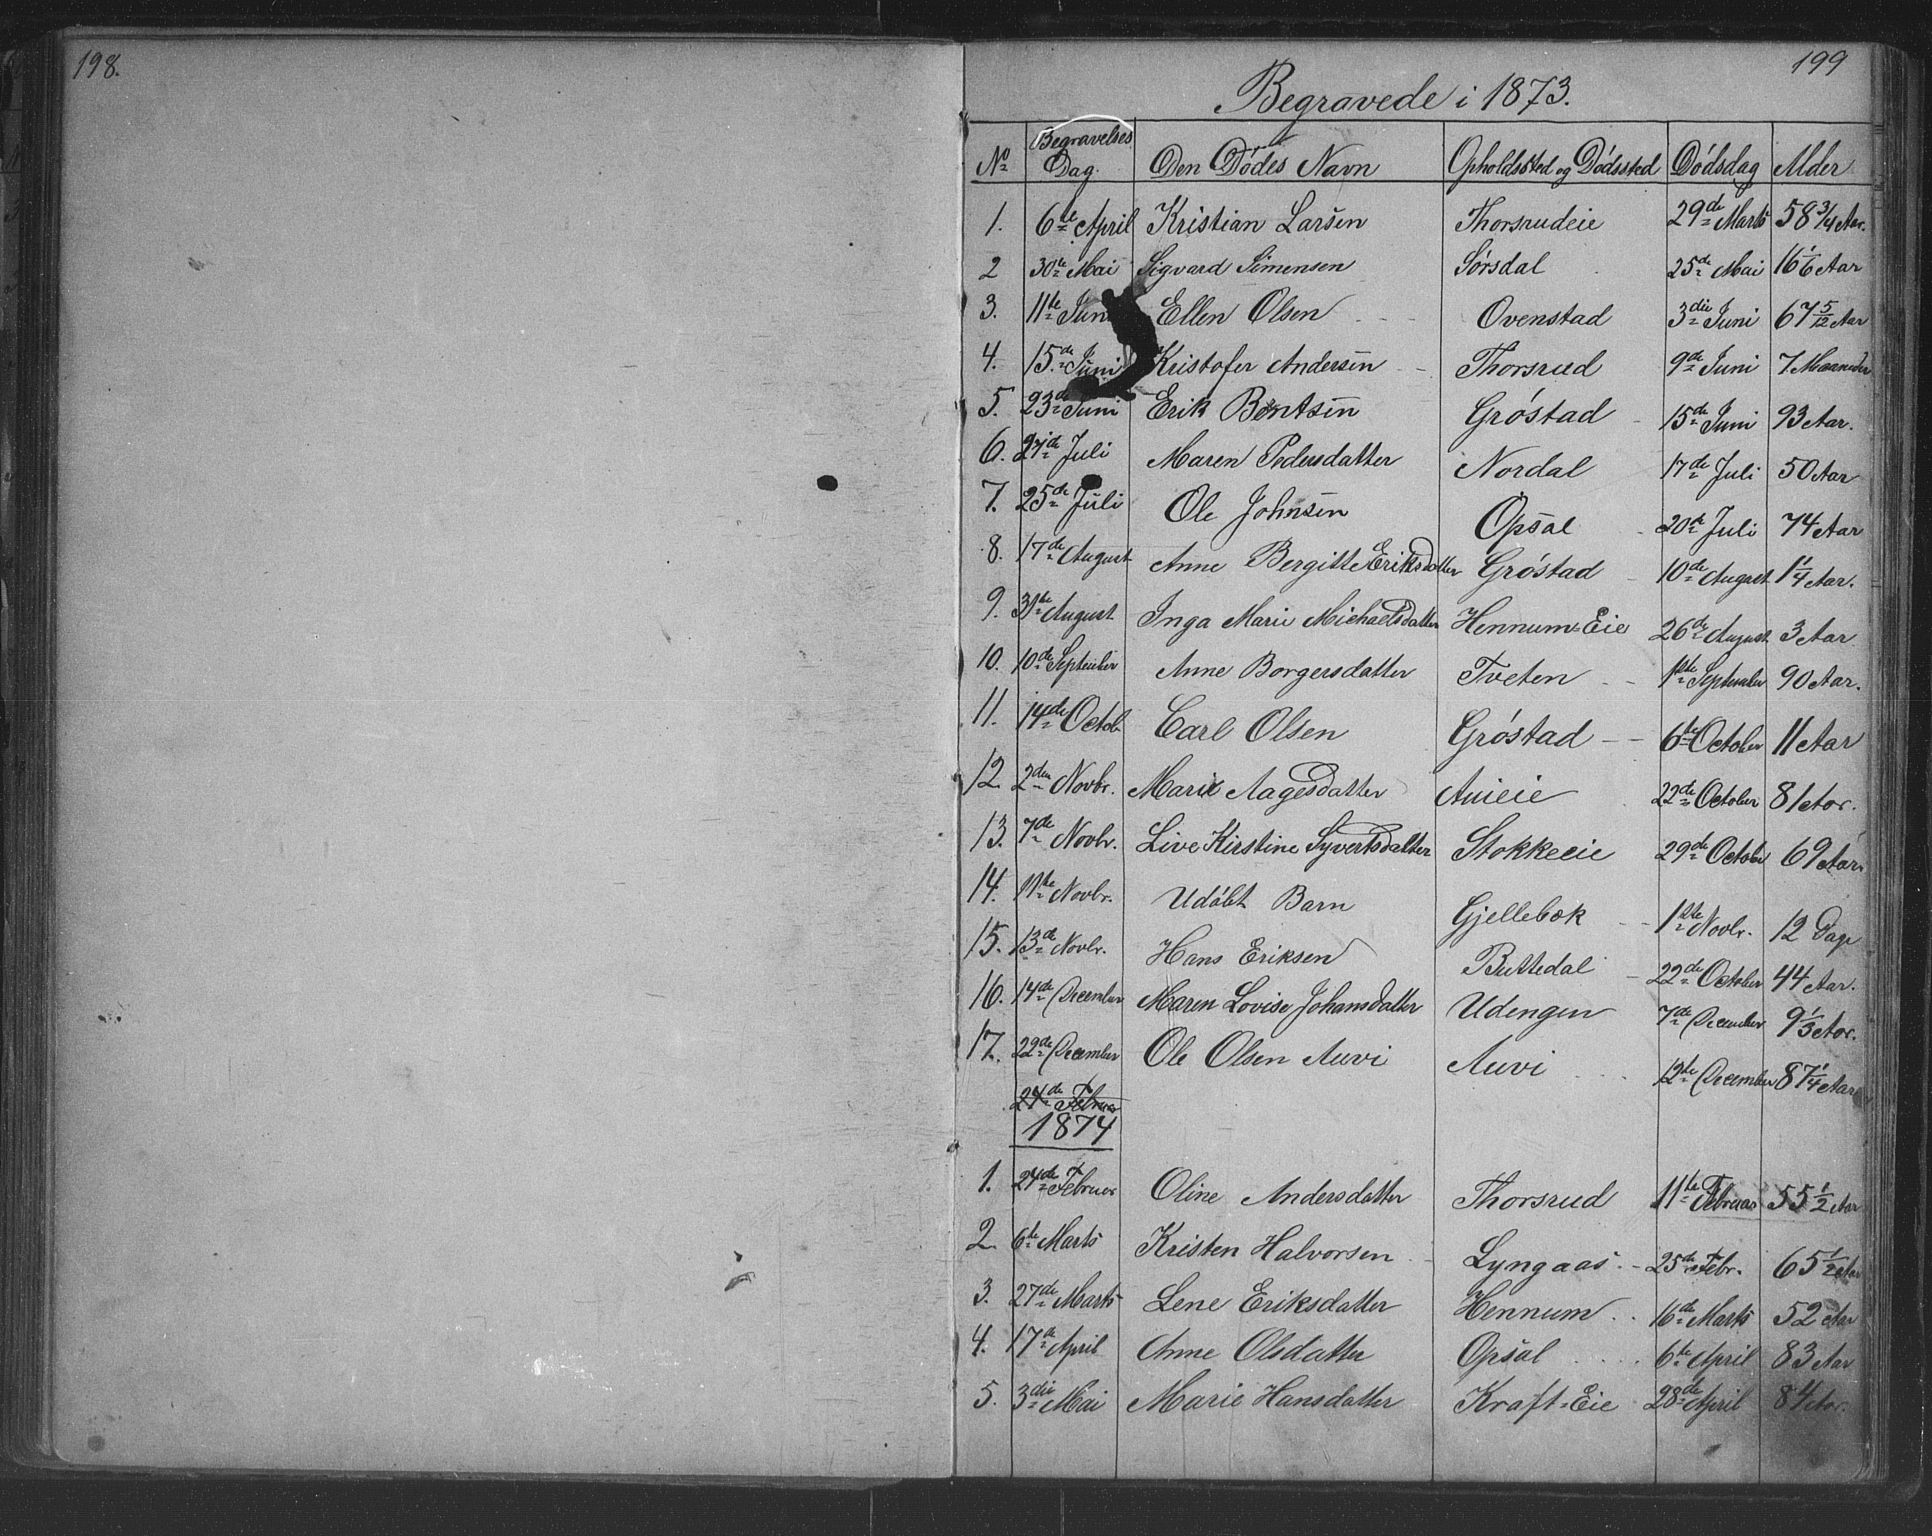 198.
199
Begravede i 1873.
No Begravelses Dag. Den Dödes Navn Opholdssted og Dödssted Dödsdag Alder
1. 6te April Kristian Larsen Thorsrudeie 29de Marts 58 3/4 Aar.
2 30te Mai Sigvard Simensen Sörsdal 25de Mai 16 1/6 Aar
3. 11te Juni Ellen Olsen Ovenstad 3die Juni 67 5/12 Aar
4. 15de Juni Kristofer Andersen Thorsrud 9de Juni 7 Maaneder
5. 23de Juni Erik Bentsen Gröstad 15de Juni 93 Aar.
6. Juli Maren Pedersdatter Nordal 17de Juli 50 Aar
7. 25de Juli Ole Johnsen Opsal 20de Juli 74 Aar
8. 17de August Anne Bergitte Eriksdatter Gröstad 10de August 1 1/4 Aar.
9. 31te August Inga Marie Michaelsdatter Hennum=Eie 26de August 3 Aar
10. 10de September Anne Borgersdatter Tveten 1ste September 90 Aar.
11. 14de Octob. Carl Olsen Gröstad 6te October 11 Aar
12. 2den Novbr. Marie Aagesdatter Auieie 22de October 81 Aar.
13. 7de Novbr. Live Kirstine Syvertsdatter Stokkeeie 29de October 69 Aar.
14. 11te Novbr. Udöbt Barn Gjellebæk 1ste Novbr. 12 Dage
15. 13de Novbr. Hans Eriksen Buttedal 22de October 44 Aar.
16. 14de December Maren Lovise Johansdatter Udengen 7de December 9 1/3 Aar.
17. 22de December Ole Olsen Auvi Auvi 12te December 87 1/4 Aar
24de Februar
1874
1. 24de Februar Oline Andersdatter Thorsrud 11te Februar 55 1/2 Aar
2. 6te Marts Kristen Halvorsen Lyngaas 25de Febr. 65 1/2 Aar
3. 27de Marts Lene Eriksdatter Hennum 16de Marts 52 Aar
4. 17de April Anne Olsdatter Opsal 6te April 83 Aar
5. 3die Mai Marie Hansdatter Kraft=Eie 28de April 84 Aar.